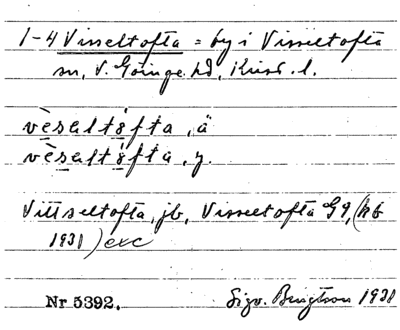 1-4 Visseltofta = by i Visseltofta
sn, V. Göinge hd, Krist. l.
vèsaltófta, ä
vèsaltófta, y.
Vittseltofta, jb, Visseltofta G 9, (kb
1931) exc
Nr 5392. Sigv. Bengtson 1931